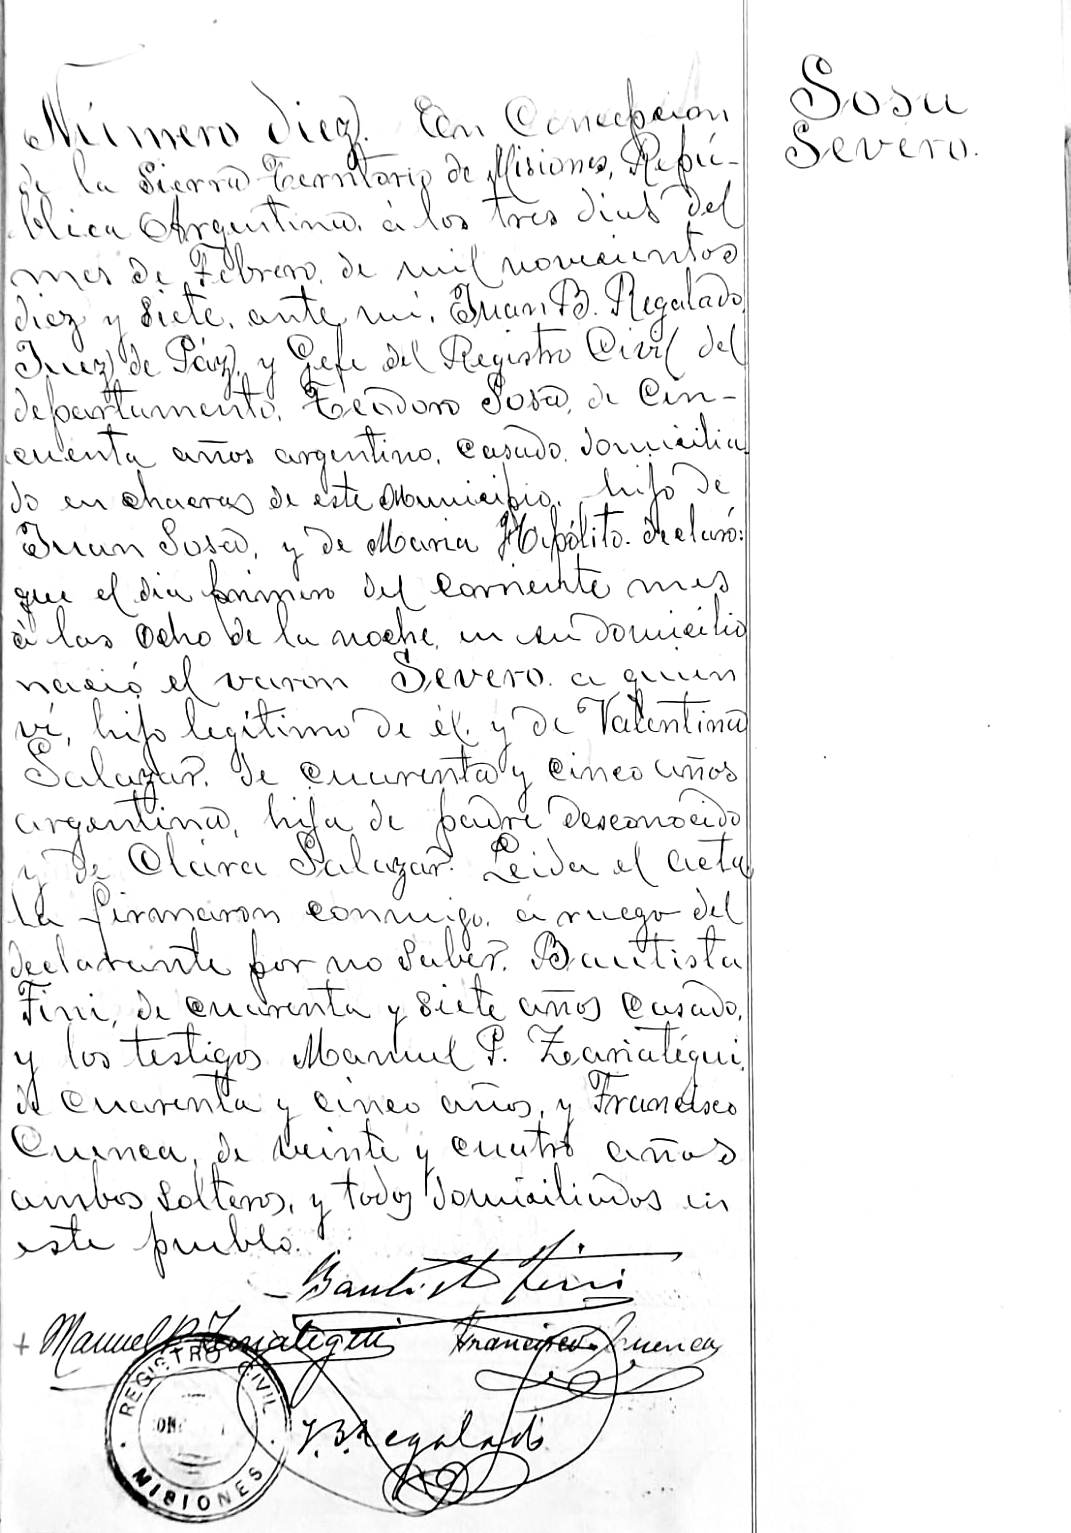 Sosa
Severo.
Número diez. En Concepcion
de la Sierra Territorio de Misiones, Repú-
blica Argentina. á los tres dias del
mes de Febrero, de mil novecientos
diez y siete, ante mi, Juan B. Regalado,
Juez de Páz, y Gefe del Registro Civil del
departamento, Teodoro Sosa, de Cin-
cuenta años argentino, casado, domicilia
do en chacras de este Municipio, hijo de
Juan Sosa, y de Maria Hipólito. declaró:
que el dia primero del corriente mes
á las ocho de la noche, en su domicilio
nació el varon Severo. a quien
ví, hijo legítimo de él, y de Valentina
Salazar. de cuarenta y cinco años
argentina, hija de padre desconocido
y de Clara Salazar. Leida el acta
la firmaron conmigo, á ruego del
declarante por no saber. Bautista
Fini, de cuarenta y siete años casado,
y los testigos Manuel P. Zeariatégui,
de cuarenta y cinco años, y Francisco
Cuenca, de veinte y cuatro años
ambos solteros, y todos domiciliados en
este pueblo.
Bautista Fini
Manuel P. Francisco Cuenca
J. B. Regalado
REGISTRO CIVIL
MISIONES